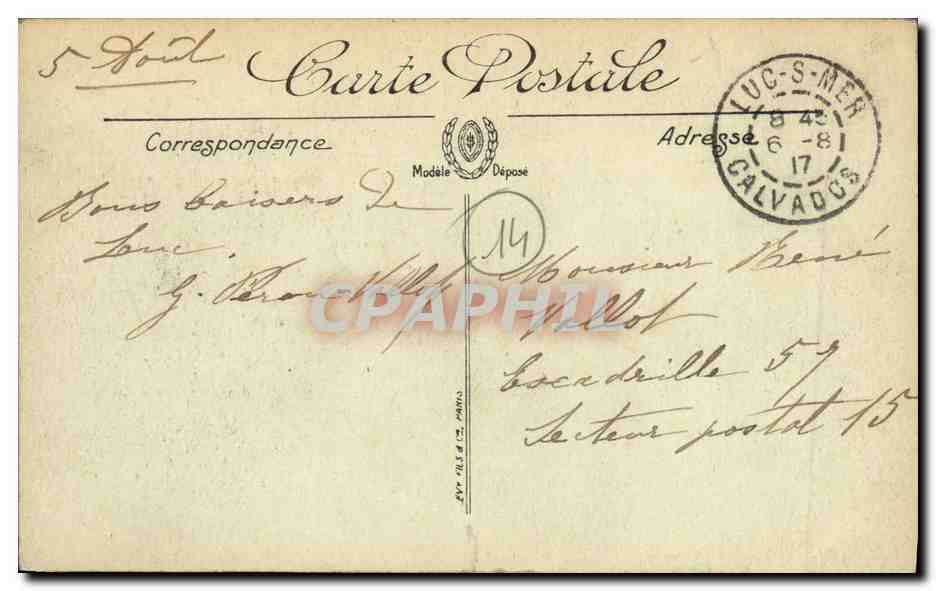 5 Août
Carte Postale
LUC-S-MER
8 45
6 -8
17
CALVADOS
Correspondance
Adresse
Modèle Déposé
Bons baisers de
Luc.
G.
14
Monsieur René
Escadrille 57
Secteur postal 15
CPAPHIL
LEVY FILS & Cie, PARIS